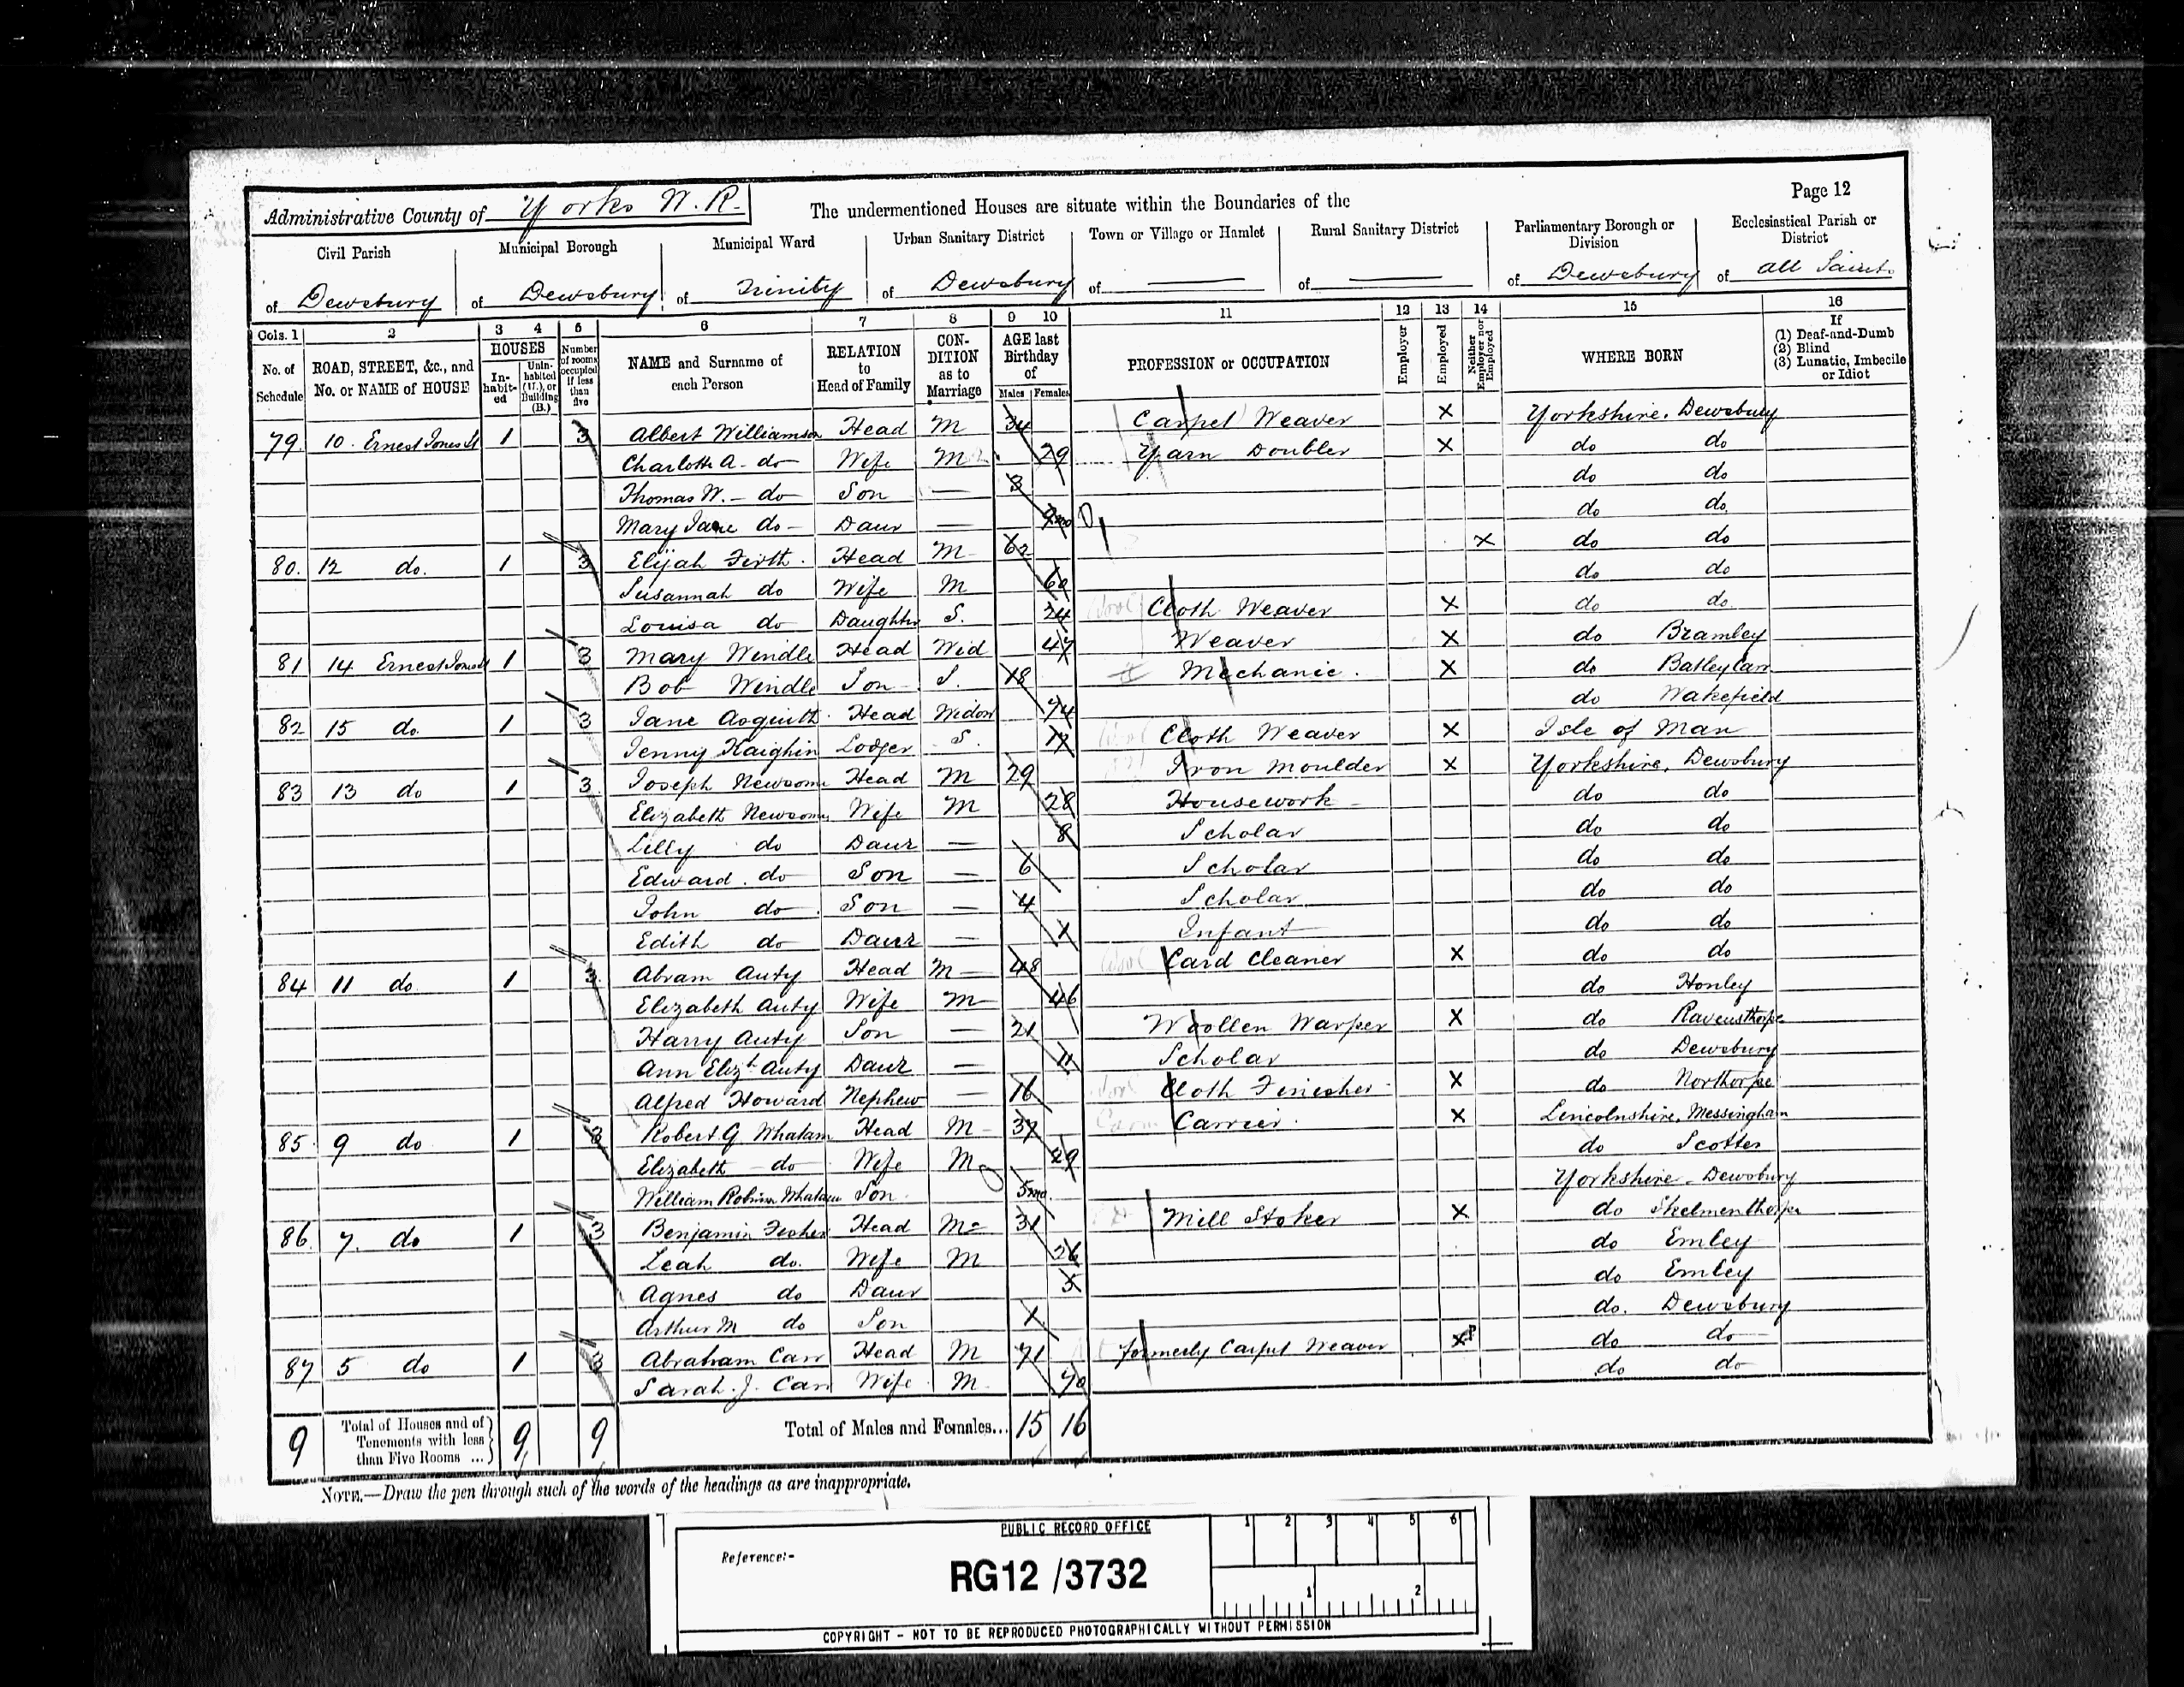 Page 12
Administrative County of Yorks W. R. The undermentioned Houses are situate within the Boundaries of the
Civil Parish Municipal Borough Municipal Ward Urban Sanitary District Town or Village or Hamlet Rural Sanitary District Parliamentary Borough or Division Ecclesiastical Parish or District
of Dewsbury of Dewsbury of Trinity of Dewsbury of — of — of Dewsbury of All Saints
Cols. 1 2 3 4 5 6 7 8 9 10 11 12 13 14 15 16
No. of Schedule ROAD, STREET, &c., and No. or NAME of HOUSE HOUSES In-habit-ed Unin-habited (U.), or Building (B.) Number of rooms occupied if less than five NAME and Surname of each Person RELATION to Head of Family CON-DITION as to Marriage AGE last Birthday of Males Females PROFESSION or OCCUPATION Employer Employed Neither Employer nor Employed WHERE BORN If (1) Deaf-and-Dumb (2) Blind (3) Lunatic, Imbecile or Idiot
79 10. Ernest Jones St 1 3 Albert Williamson Head M 34 Carpet Weaver X Yorkshire, Dewsbury
Charlotte A. do Wife M 29 Yarn Doubler X do do
Thomas W. do Son — 3 do do
Mary Jane do Daur — 9mo do do
80. 12 do. 1 3 Elijah Firth Head M 62 X do do
Susannah do Wife M 60 do do
Louisa do Daughter S. 24 Cloth Weaver X do do
81 14 Ernest Jones St 1 3 Mary Windle Head Wid 47 Weaver X do Bramley
Bob Windle Son S. 18 Mechanic. X do Batley Carr
82 15 do. 1 3 Jane Asquith Head Widow 74 do Wakefield
Jenny Kaighin Lodger S. 17 Cloth Weaver X Isle of Man
83 13 do 1 3 Joseph Newsome Head M 29 Iron Moulder X Yorkshire, Dewsbury
Elizabeth Newsome Wife M 28 Housework do do
Lilly do Daur — 8 Scholar do do
Edward do Son — 6 Scholar do do
John do Son — 4 Scholar do do
Edith do Daur — 1 Infant do do
84 11 do. 1 3 Abram Auty Head M 48 Card Cleaner X do do
Elizabeth Auty Wife M 46 do Honley
Harry Auty Son — 21 Woollen Warper X do Ravensthorpe
Ann Elizth Auty Daur — 11 Scholar do Dewsbury
Alfred Howard Nephew — 16 Cloth Finisher X do Northorpe
85. 9 do 1 3 Robert G Whatam Head M 37 Carrier. X Lincolnshire, Messingham
Elizabeth do Wife M 29 do Scotter
William Robinson Whatam Son 5mo. Yorkshire - Dewsbury
86. 7. do 1 3 Benjamin Fisher Head M 31 Mill Stoker X do Skelmenthorpe
Leah do. Wife M 26 do Emley
Agnes do Daur 5 do Emley
Arthur M do Son 1 do. Dewsbury
87 5 do 1 3 Abraham Carr Head M 71 formerly Carpet Weaver X do do
Sarah. J. Carr Wife M 70 do do
9 Total of Houses and of Tenements with less than Five Rooms ... 9 9 Total of Males and Females... 15 16
NOTE.—Draw the pen through such of the words of the headings as are inappropriate.
PUBLIC RECORD OFFICE
1 2 3 4 5 6
Reference:-
RG12 /3732
1 2
COPYRIGHT - NOT TO BE REPRODUCED PHOTOGRAPHICALLY WITHOUT PERMISSION